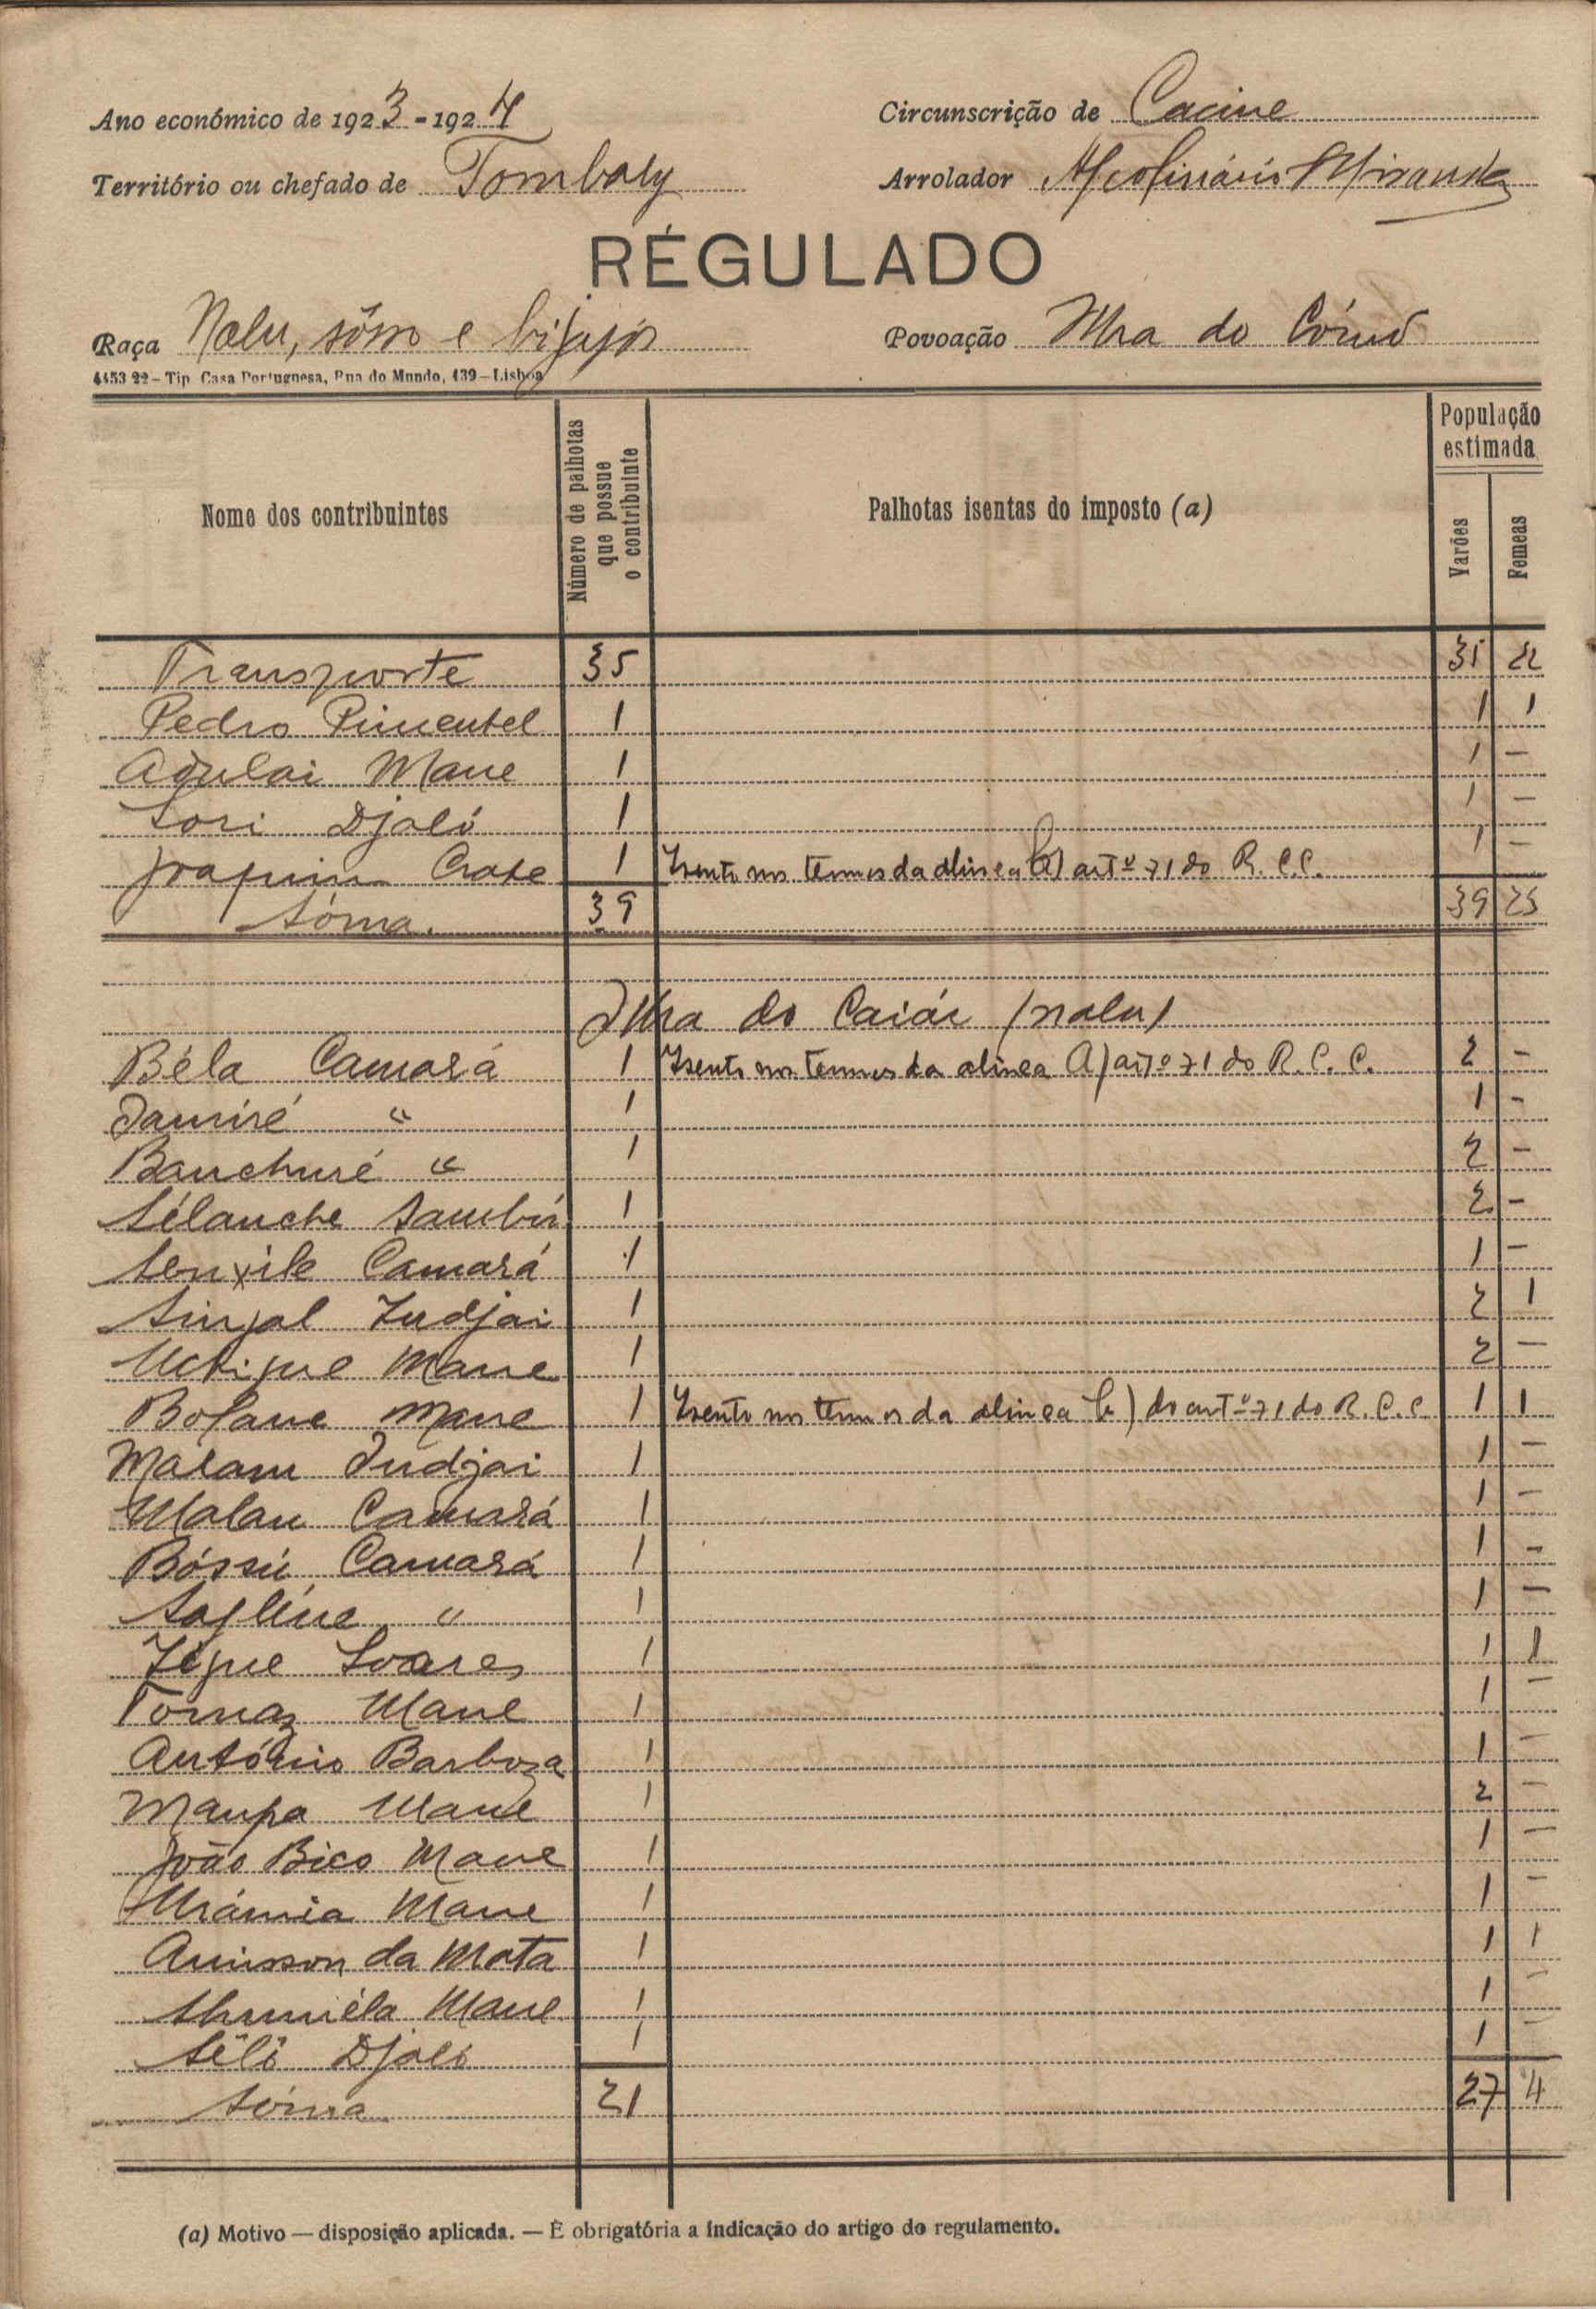 Ano económico de 1923-1924 Circunscrição de Cacine
Território ou chefado de Tombaly Arrolador Miranda
RÉGULADO
Raça Nalu, sôso e bijagós Povoação Ilha do
4453 22 - Tip Casa Portuguesa, Rua do Mundo, 139 - Lisboa
Nome dos contribuintes
Número de palhotas que possue o contribuinte
Palhotas isentas do imposto (a)
População estimada
Varões
Femeas
Transporte 35 35 22
Pedro Pimentel 1 1 1
Mane 1 1 -
Sori Djaló 1 1 -
Joaquim 1 Isento nos termos da alinea b) artº 71 do R. C. C. 1 -
Sóma. 39 39 23
Ilha do Caiár (nalu)
Béla Camará 1 Isento nos termos da alinea A) artº 71 do R. C. C. 2 -
Jamiré " 1 1 -
Banchuré " 1 2 -
Sélanche Sambú 1 2 -
Camará 1 1 -
Indjai 1 2 1
Mane 1 2 -
Bofane Mane 1 Isento nos termos da alinea b) do artº 71 do R. C. C. 1 1
Malam Indjai 1 1 -
Malan Camará 1 1 -
Bóssú Camará 1 1 -
" 1 1 -
Soares 1 1 1
Tomaz Mane 1 1 -
António Barboza 1 1 -
Manpa Mane 1 2 -
João Bico Mane 1 1 -
Mane 1 1 -
da Mota 1 1 1
Mane 1 1 -
Sêlô Djaló 1 1 -
Sóma 21 27 4
(a) Motivo — disposição aplicada. — É obrigatória a indicação do artigo do regulamento.